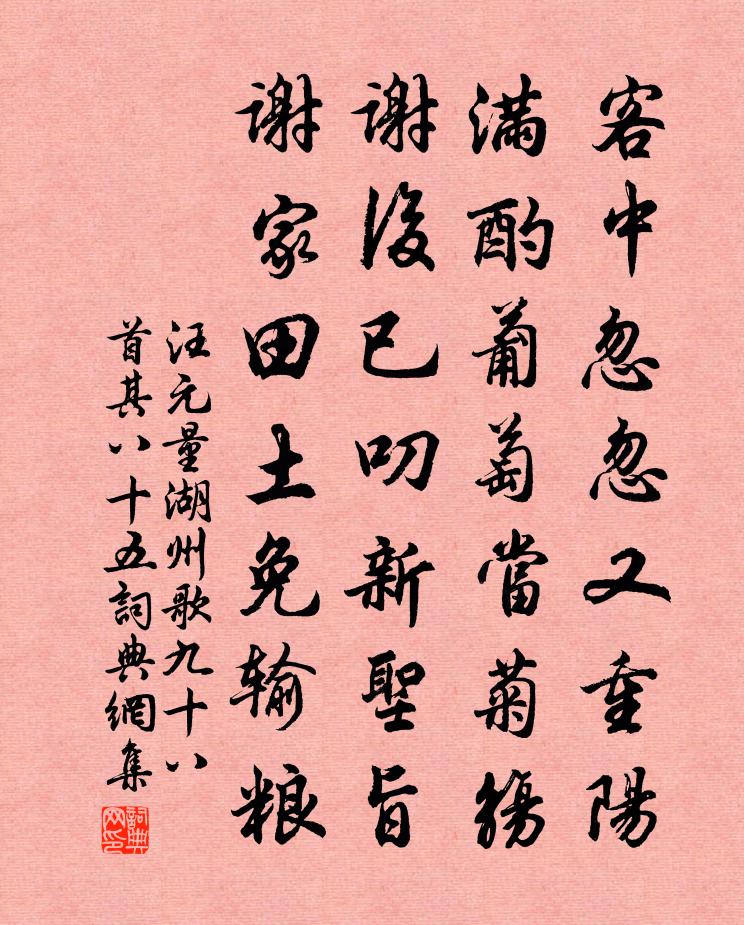 客中忽忽又重陽
滿酌葡萄當菊觴
謝後已叨新聖旨
謝家田土免输粮
汪元量湖州歌九十八
首其八十五詞典網集
詞典
网印